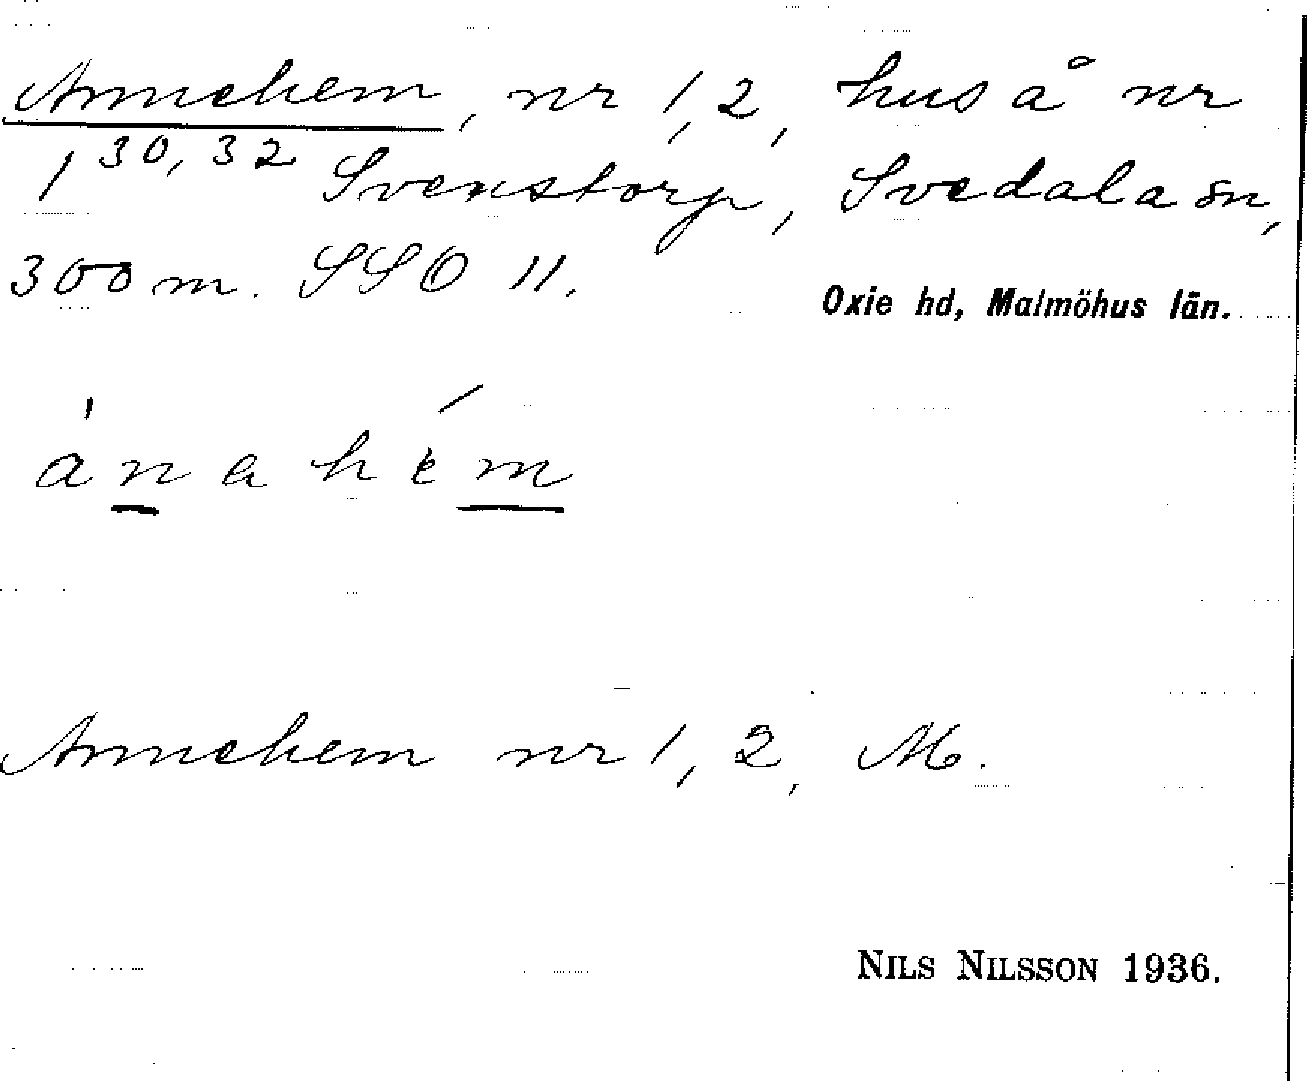 Annehem, nr 1, 2, hus å nr
1 30, 32 Svenstorp, Svedala sn,
300 m. SSO 11.
Oxie hd, Malmöhus län.
ánahém
Annehem nr 1, 2, M.
NILS NILSSON 1936.